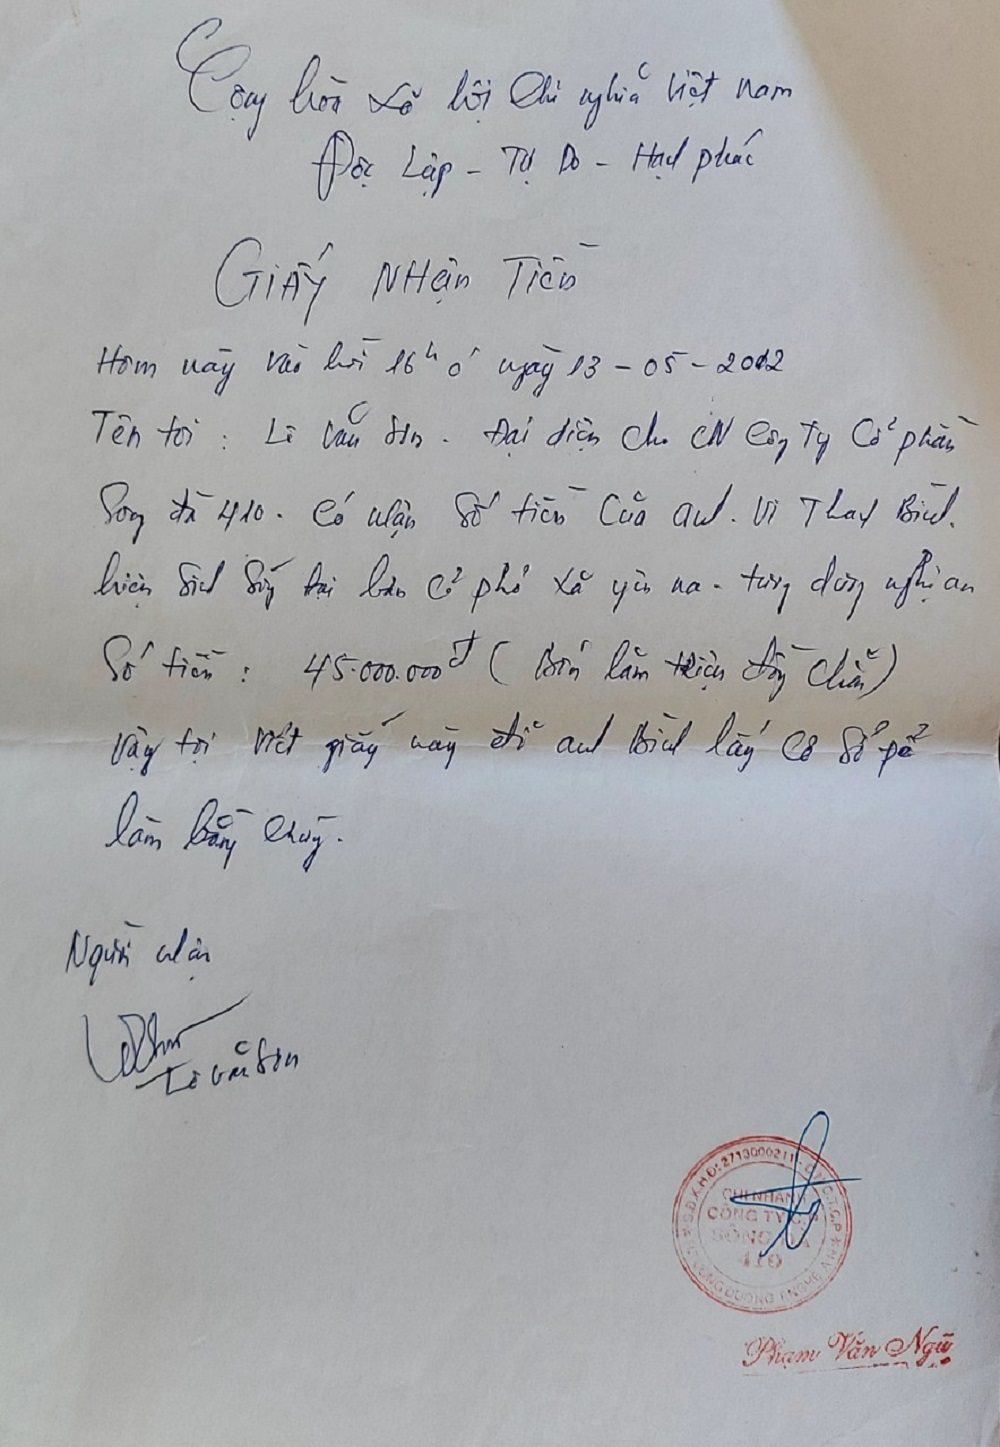 Cộng hòa Xã hội Chủ nghĩa Việt Nam
Độc Lập - Tự Do - Hạnh phúc
GIẤY NHẬN TIỀN
Hôm nay vào hồi 16h 0' ngày 13 - 05 - 2012
Tên tôi : Lê Văn Sơn. Đại diện cho CN Công Ty Cổ phần
Sông đà 410. Có nhận Số tiền Của anh. Vi Thanh Bình.
hiện Sinh Sống tại bản Cổ phổ xã yên na - tương dương nghệ an
Số tiền : 45.000.000đ ( Bốn lăm triệu đồng chẵn)
Vậy tôi viết giấy này để anh Bình lấy Cơ Sở để
làm bằng chứng.
Người nhận
Lê Văn Sơn
S.Đ.K.H.Đ: 2713000211 - C.N.C.T.C.P
CHI NHÁNH
CÔNG TY C.P
SÔNG ĐÀ
410
DƯƠNG T.NGHỆ AN
Phạm Văn Ngữ